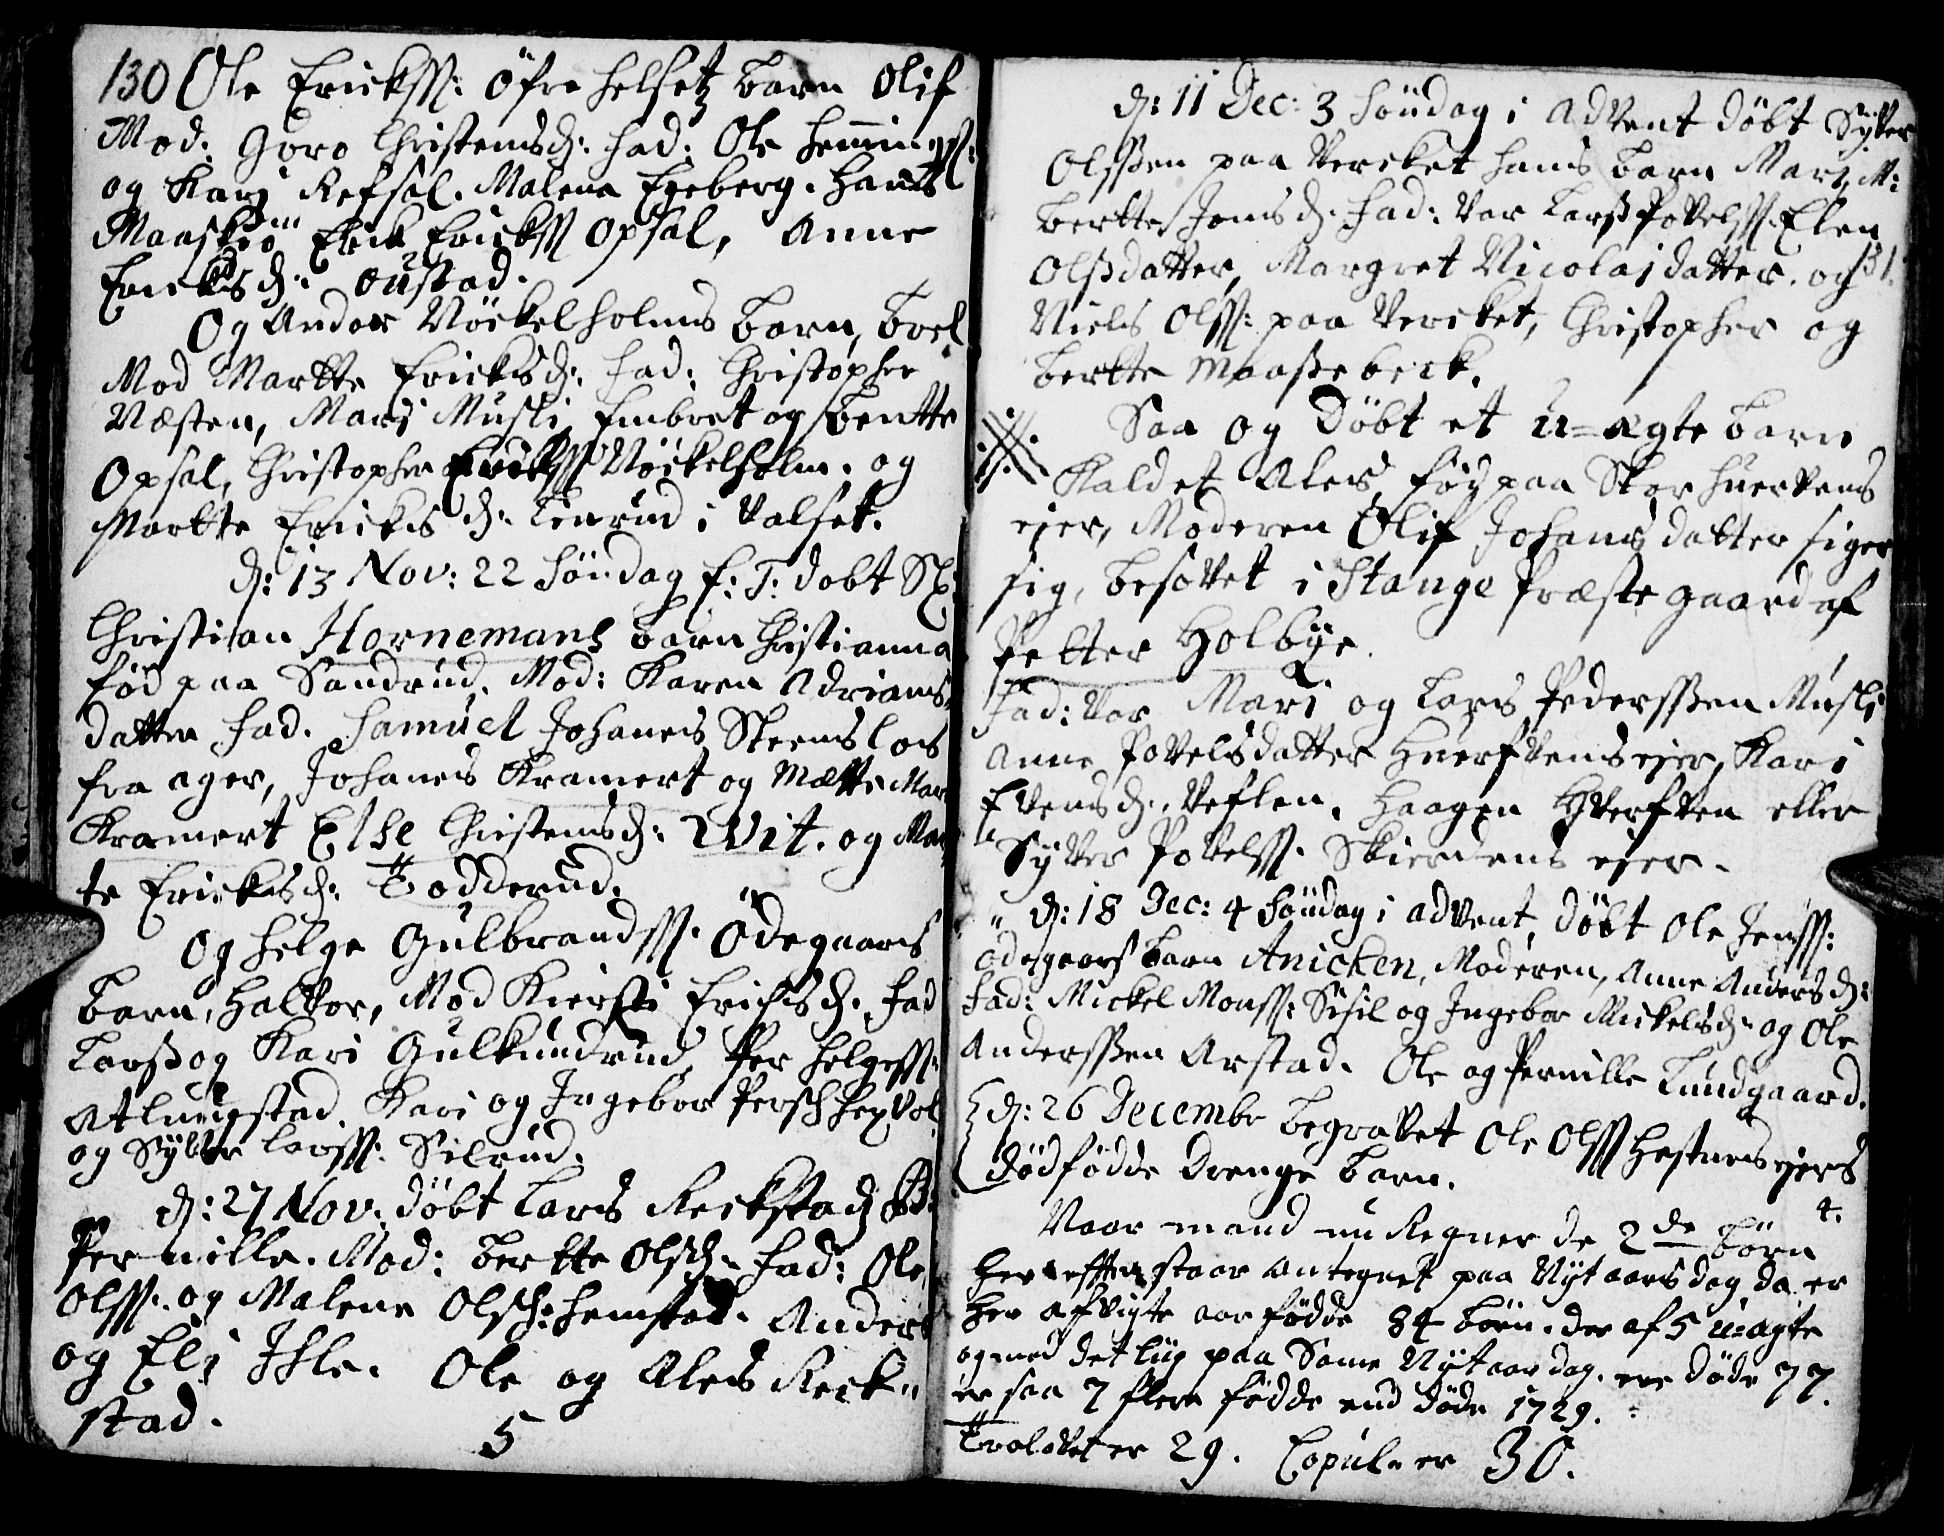 130 Ole Ericksß: Öfre Helsetz barn Olif
Mod: Goro Christensd: fad: Ole Hemingsß:
og Kari Refsal. Malena Egeberg. Hans
Maaskiö Erick Ericksß Opsal, Anne
Ericksd: oustad.
Og Anders Nöckelholms barn, Boel
Mod Martte Ericksd: fad: Christopher
Næsten, Mari Musli, Embret og Bentte
Opsal, Christopher Ericksß Nöckelholm. og
Martte Ericks d: Linrud i Valset.
d: 13 Nov: 22 Söndag f: T: döbt Sr:
Christian Hornemans barn Christianna
föd paa Sandrud. Mod: Karen Adrians-
datter fad. Samuel Johanes Steenslos
fra ager, Johanes Kramert og Mætte Mari
Kramert Else Christensd: Wit. og Mar-
te Ericksd: Todderud.
Og Helge Gulbrandsß. Ödegaards
barn, Halvor, Mod Kiersti Erichsd. fad
Larß og Kari Gulkundrud, Per Helgesß:
Atlungstad. Kari og Ingebor Persd Hexvol
og Sylver Larsß. Silrud.
d: 27 Nov: döbt Lars Reckstad B:
Pernille. Mod: Bertte Olsd. fad: Ole
Olsß. og Malene Olsd: Hemstad. Anders
og Eli Ihle. Ole og Ales Reck-
stad.
5
d: 11 Dec: 3 Söndag i Advent döbt Syver
Olsßen paa Vercket hans barn Mari, M:
Bertte Jensd. fad: Var Larß Povelsß. Elen
Olsdatter, Margret Nicolajdatter. og 131.
Niels Olsß: paa Vercket, Christopher og
Bertte Maaßebeck.
Saa og Döbt et u=ægte barn
Kaldet Ales, föd paa Skorhuervens
ejer, Moderen Olif Johansdatter siger
sig, besovet i Stange Præstegaard af
Petter Holbÿe.
Fad: Var Mari og Lars Pedersßen Musli
Anne Povelsdatter Huerfvens ejer, Kari
Evensd. Veflen. Haagen Hverfven eller
Syver Povelsß. Skierdens ejer.
d: 18 Dec: 4 Söndag i advent, döbt Ole Jensß:
Ödegaars barn Anicken, Moderen, Anne Andersd:
fad: Mickel Monsß: Sisil og Ingebor Mickelsd. og Ole
Andersßen Arstad. Ole og Pernille Lundgaard.
d: 26 Decembr begravet Ole Olsß Hestnes ejers
Dödfödde Drenge barn.
4.
Naar mand nu Regner de 2de börn
her efften staar antegnet paa Nytaars dag, da er
her afvigte aar födde 84 börn. der af 5 u=ægte
og med det liig paa Same Nytaars dag. ere döde 77.
er saa 7 flere födde end döde 1729.
Trolovet er 29. Copul. er 30.